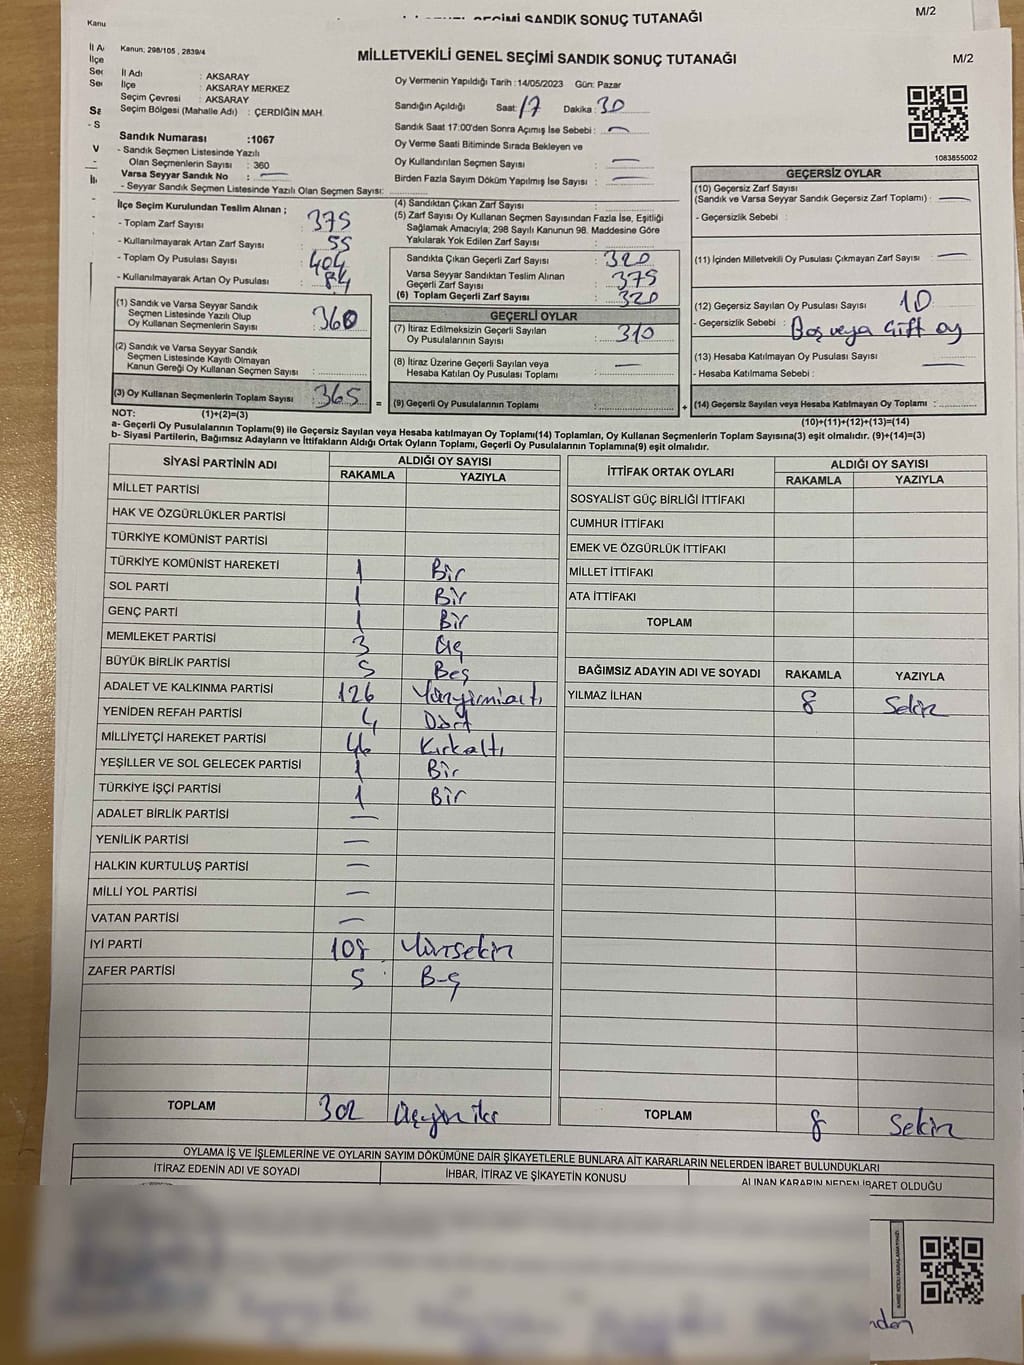 SEÇİMİ SANDIK SONUÇ TUTANAĞI
M/2
Kanu
Kanun; 298/105 , 2839/4
MİLLETVEKİLİ GENEL SEÇİMİ SANDIK SONUÇ TUTANAĞI
M/2
İl Adı : AKSARAY
İlçe : AKSARAY MERKEZ
Seçim Çevresi : AKSARAY
Seçim Bölgesi (Mahalle Adı) : ÇERDİĞİN MAH.
Sandık Numarası :1067
- Sandık Seçmen Listesinde Yazılı
Olan Seçmenlerin Sayısı : 360
Varsa Seyyar Sandık No : —
- Seyyar Sandık Seçmen Listesinde Yazılı Olan Seçmen Sayısı:
Oy Vermenin Yapıldığı Tarih :14/05/2023 Gün: Pazar
Sandığın Açıldığı Saat: 17 Dakika: 30
Sandık Saat 17:00'den Sonra Açımış İse Sebebi : —
Oy Verme Saati Bitiminde Sırada Bekleyen ve
Oy Kullandırılan Seçmen Sayısı : —
Birden Fazla Sayım Döküm Yapılmış İse Sayısı : —
1083855002
İlçe Seçim Kurulundan Teslim Alınan ;
- Toplam Zarf Sayısı : 375
- Kullanılmayarak Artan Zarf Sayısı : 55
- Toplam Oy Pusulası Sayısı : 404
- Kullanılmayarak Artan Oy Pusulası : 84
(1) Sandık ve Varsa Seyyar Sandık
Seçmen Listesinde Yazılı Olup
Oy Kullanan Seçmenlerin Sayısı : 360
(2) Sandık ve Varsa Seyyar Sandık
Seçmen Listesinde Kayıtlı Olmayan
Kanun Gereği Oy Kullanan Seçmen Sayısı :
(3) Oy Kullanan Seçmenlerin Toplam Sayısı : 365 =
(4) Sandıktan Çıkan Zarf Sayısı :
(5) Zarf Sayısı Oy Kullanan Seçmen Sayısından Fazla İse, Eşitliği
Sağlamak Amacıyla; 298 Sayılı Kanunun 98. Maddesine Göre
Yakılarak Yok Edilen Zarf Sayısı :
Sandıkta Çıkan Geçerli Zarf Sayısı : 320
Varsa Seyyar Sandıktan Teslim Alınan
Geçerli Zarf Sayısı : 375
(6) Toplam Geçerli Zarf Sayısı : 320
GEÇERLİ OYLAR
(7) İtiraz Edilmeksizin Geçerli Sayılan
Oy Pusulalarının Sayısı : 310
(8) İtiraz Üzerine Geçerli Sayılan veya
Hesaba Katılan Oy Pusulası Toplamı : —
(9) Geçerli Oy Pusulalarının Toplamı : +
GEÇERSİZ OYLAR
(10) Geçersiz Zarf Sayısı
(Sandık ve Varsa Seyyar Sandık Geçersiz Zarf Toplamı) : —
- Geçersizlik Sebebi :
(11) İçinden Milletvekili Oy Pusulası Çıkmayan Zarf Sayısı : —
(12) Geçersiz Sayılan Oy Pusulası Sayısı : 10
- Geçersizlik Sebebi : Boş veya Çift oy
(13) Hesaba Katılmayan Oy Pusulası Sayısı :
- Hesaba Katılmama Sebebi : —
(14) Geçersiz Sayılan veya Hesaba Katılmayan Oy Toplamı :
NOT: (1)+(2)=(3)
(10)+(11)+(12)+(13)=(14)
a- Geçerli Oy Pusulalarının Toplamı(9) ile Geçersiz Sayılan veya Hesaba katılmayan Oy Toplamı(14) Toplamları, Oy Kullanan Seçmenlerin Toplam Sayısına(3) eşit olmalıdır. (9)+(14)=(3)
b- Siyasi Partilerin, Bağımsız Adayların ve İttifakların Aldığı Ortak Oyların Toplamı, Geçerli Oy Pusulalarının Toplamına(9) eşit olmalıdır.
SİYASİ PARTİNİN ADI ALDIĞI OY SAYISI
RAKAMLA YAZIYLA
MİLLET PARTİSİ
HAK VE ÖZGÜRLÜKLER PARTİSİ
TÜRKİYE KOMÜNİST PARTİSİ
TÜRKİYE KOMÜNİST HAREKETİ 1 Bir
SOL PARTİ 1 Bir
GENÇ PARTİ 1 Bir
MEMLEKET PARTİSİ 3 Üç
BÜYÜK BİRLİK PARTİSİ 5 Beş
ADALET VE KALKINMA PARTİSİ 126 Yüzyirmialtı
YENİDEN REFAH PARTİSİ 4 Dört
MİLLİYETÇİ HAREKET PARTİSİ 46 Kırkaltı
YEŞİLLER VE SOL GELECEK PARTİSİ 1 Bir
TÜRKİYE İŞÇİ PARTİSİ 1 Bir
ADALET BİRLİK PARTİSİ —
YENİLİK PARTİSİ —
HALKIN KURTULUŞ PARTİSİ —
MİLLİ YOL PARTİSİ —
VATAN PARTİSİ —
İYİ PARTİ 108 Yüzsekiz
ZAFER PARTİSİ 5 Beş
TOPLAM 302 Üçyüz iki
İTTİFAK ORTAK OYLARI ALDIĞI OY SAYISI
RAKAMLA YAZIYLA
SOSYALİST GÜÇ BİRLİĞİ İTTİFAKI
CUMHUR İTTİFAKI
EMEK VE ÖZGÜRLÜK İTTİFAKI
MİLLET İTTİFAKI
ATA İTTİFAKI
TOPLAM
BAĞIMSIZ ADAYIN ADI VE SOYADI RAKAMLA YAZIYLA
YILMAZ İLHAN 8 Sekiz
TOPLAM 8 Sekiz
OYLAMA İŞ VE İŞLEMLERİNE VE OYLARIN SAYIM DÖKÜMÜNE DAİR ŞİKAYETLERLE BUNLARA AİT KARARLARIN NELERDEN İBARET BULUNDUKLARI
İTİRAZ EDENİN ADI VE SOYADI İHBAR, İTİRAZ VE ŞİKAYETİN KONUSU ALINAN KARARIN NEDEN İBARET OLDUĞU